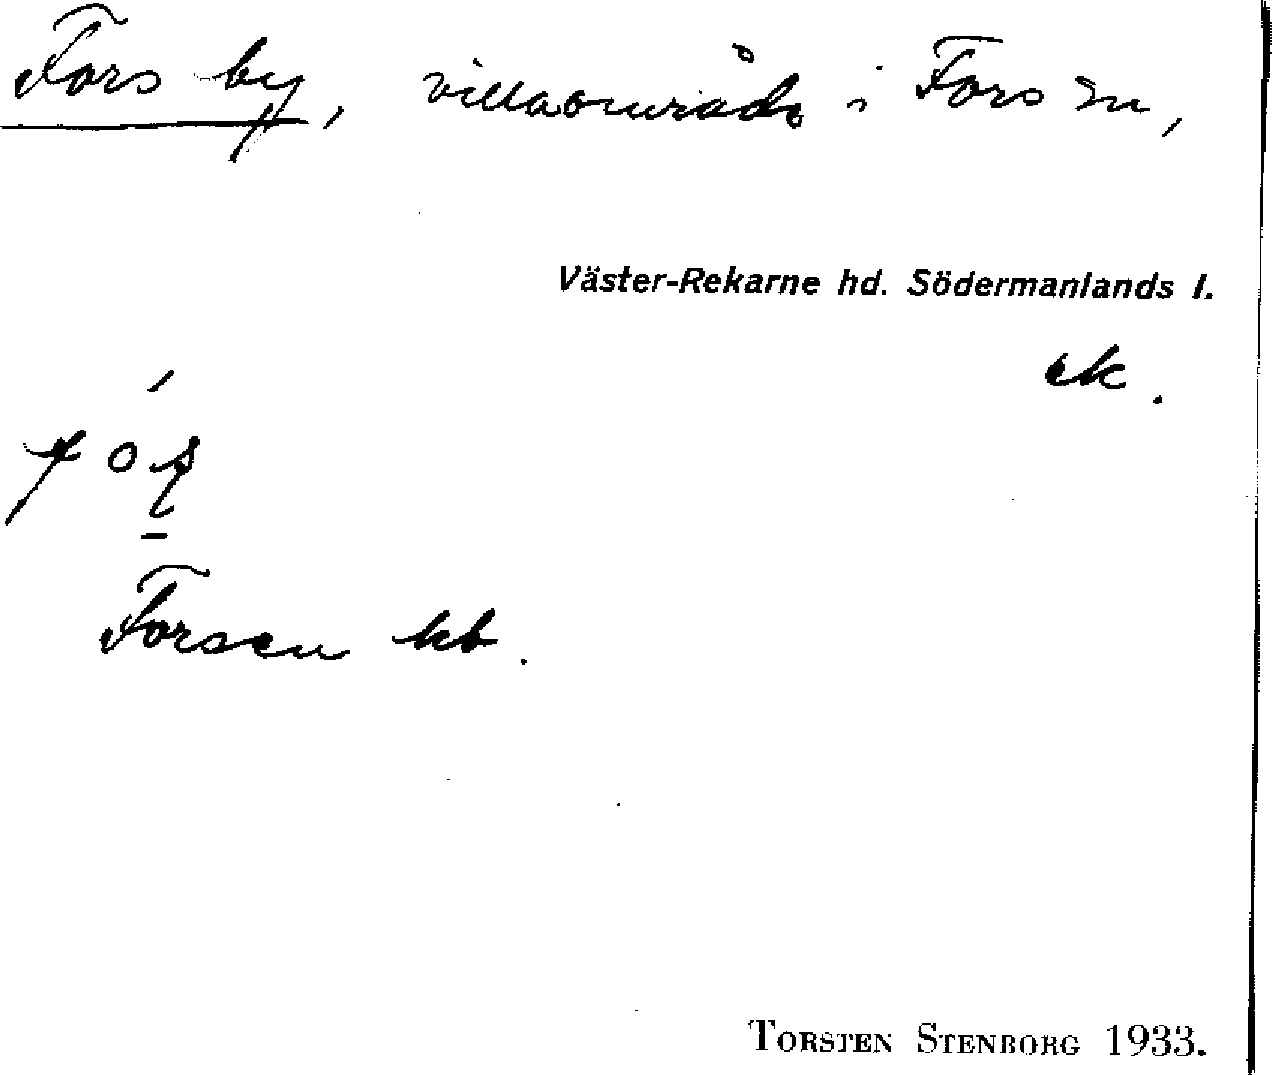 Fors by, villaområde i Fors sn,
Väster-Rekarne hd. Södermanlands l.
ek.
Forsen kb.
TORSTEN STENBORG 1933.